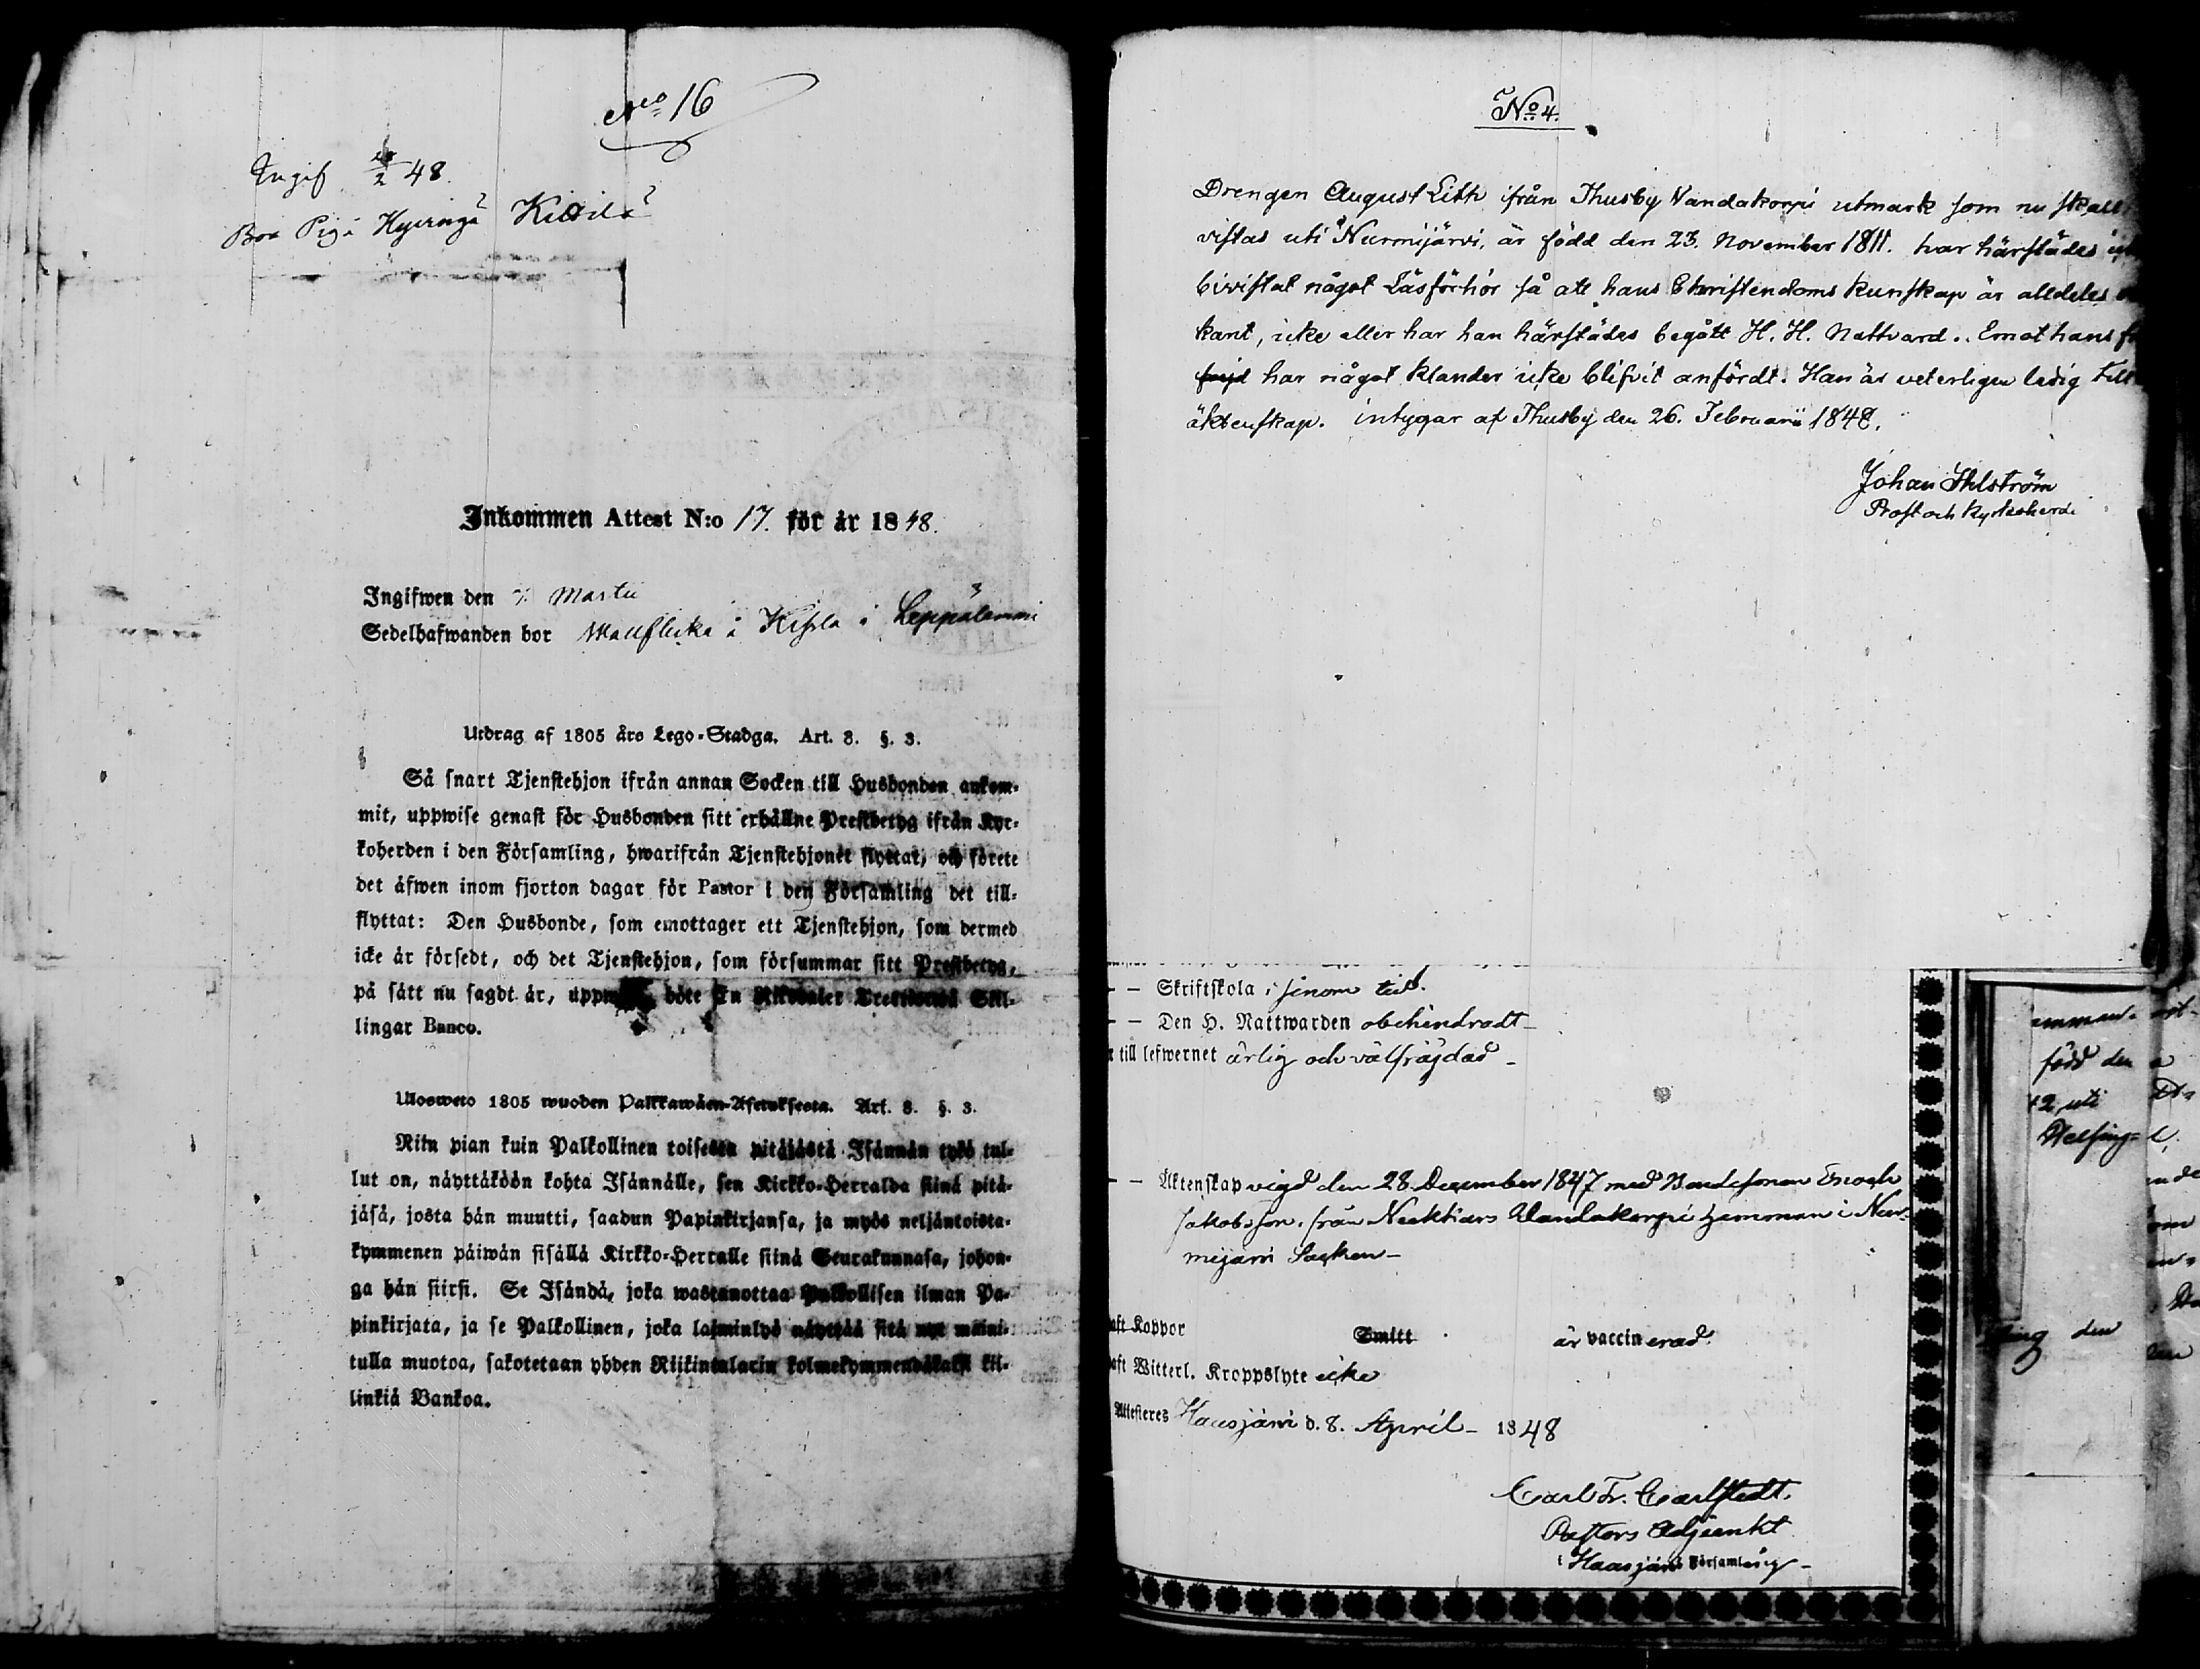 No 16
Ingif 2 48.
Bor Piga Hyvinge
Inkommen Attest N:o 17. för år 1848.
Ingifwen den Martii
Sedelhafwanden bor i Leppälammi
Utdrag af 1805 års Lego-Stadga. Art. 8. §. 3.
Så snart Tjenstehjon ifrån annan Socken till Husbonden ankom-
mit, uppwise genast för Husbonden sitt erhållne Prestbetyg ifrån Kyr-
koherden i den Församling, hwarifrån Tjenstehjonet flyttat, och förete
det äfwen inom fjorton dagar för Pastor i den Församling det till-
flyttat: Den Husbonde, som emottager ett Tjenstehjon, som dermed
icke är försedt, och det Tjenstehjon, som försummar sitt Prestbetyg,
på sätt nu sagdt är, böte En Riksdaler Trettiotwå Skil-
lingar Banco.
Ulosweto 1805 wuoden Palkkawäen-Asetuksesta. Art. 8. §. 3.
Niin pian kuin Palkollinen toisesta pitäjästä Isännän työ tul-
lut on, näyttäköön kohta Isännälle, sen Kirkko-Herralda siinä pitä-
jäsä, josta hän muutti, saadun Papinkirjansa, ja myös neljäntoista-
kymmenen päiwän sisällä Kirkko-Herralle siinä Seurakunnasa, johon-
ga hän siirsi. Se Isändä, joka wastanottaa Palkollisen ilman Pa-
pinkirjata, ja se Palkollinen, joka laiminlyö näyttää sitä nyt maini-
tulla muotoa, sakotetaan yhden Riikintalarin kolmekymmendäkaksi kil-
linkiä Bankoa.
No 4.
Drengen August Lith ifrån Thusby Vandakorpi utmark som nu skall
vistas uti Nurmijärvi, är född den 23. November 1811. har härstädes
bivistat något Läsförhör så att hans Christendoms kunskap är alldeles
kant, icke eller har han härstädes begått H. H. Nattvard. Emot hans
har något klander icke blifvit anfördt. Han är veterligen ledig till
äktenskap. intygar af Thusby den 26. Februarii 1848.
Johan Ihlström
Prost och Kyrkoherde
– – Skriftskola i sinom tid.
– – Den H. Nattwarden obehindradt –
till lefwernet ärlig och välfräjdad –
– – Äktenskap vigd den 28 December 1847 med Bondesonen Enoch
Jakobsson från Vandakorpi hemman i Nur-
mijärvi Socken –
aft Koppor Smitt är vaccinerad.
aft Witterl. Kroppslyte icke
Attesteres Hausjärvi d. 8. April – 1848
Carl Fr. Carlstedt.
Pastors Adjunkt
i Hausjärvi Församling –
född den
uti
Helsing-
den